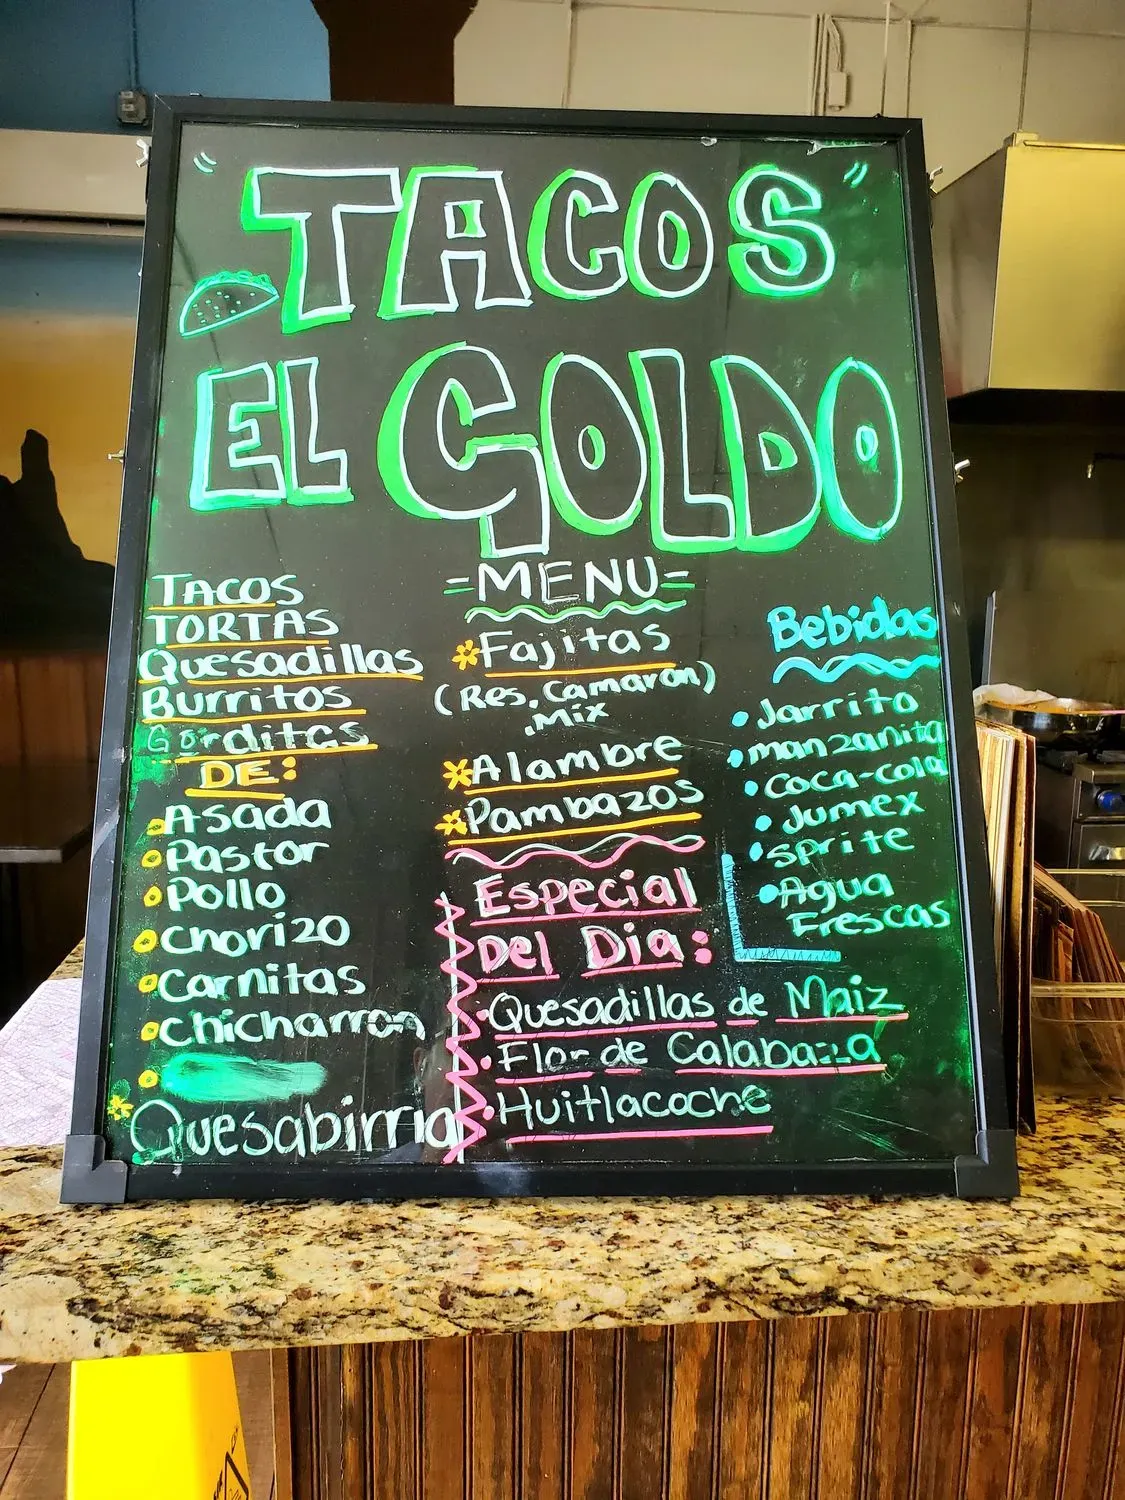 "TACOS"
EL GOLDO
=MENU=
TACOS
TORTAS
Quesadillas
Burritos
Gorditas
DE:
Asada
Pastor
Pollo
Chorizo
Carnitas
Chicharron
Quesabirria
Fajitas
(Res. Camaron)
.Mix
Alambre
Pambazos
Especial
Del Dia:
Quesadillas de Maiz
Flor de Calabaza
Huitlacoche
Bebidas
Jarrito
manzanita
coca-cola
Jumex
sprite
Agua
Frescas